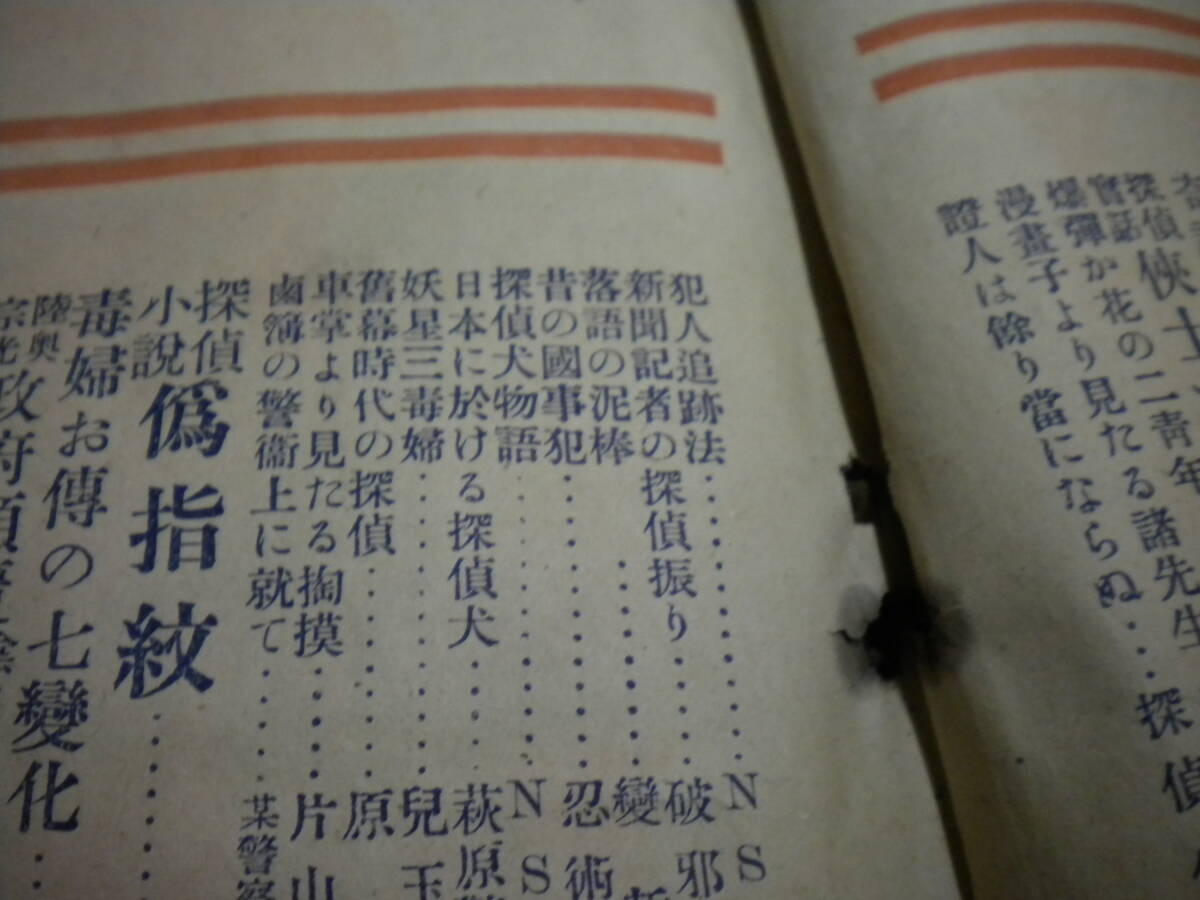 探偵
實話
俠士
爆彈か花の二靑年
漫畫子より見たる諸先生
證人は餘り當にならぬ・・・・探偵
犯人追跡法・・・・・・・・・・NS
新聞記者の探偵振り・・・・破邪
落語の泥棒・・・・・・・・・變
昔の國事犯・・・・・・・・・忍術
探偵犬物語・・・・・・・・・NS
日本に於ける探偵犬・・・・萩原
妖星三毒婦・・・・・・・・・兒玉
舊幕時代の探偵・・・・・・原
車掌より見たる掏摸・・・・片山
鹵簿の警衞上に就て・・・・某警察
探偵
小說
僞指紋・・・・・・
毒婦お傳の七變化・・・
陸奥
宗光
政府顚